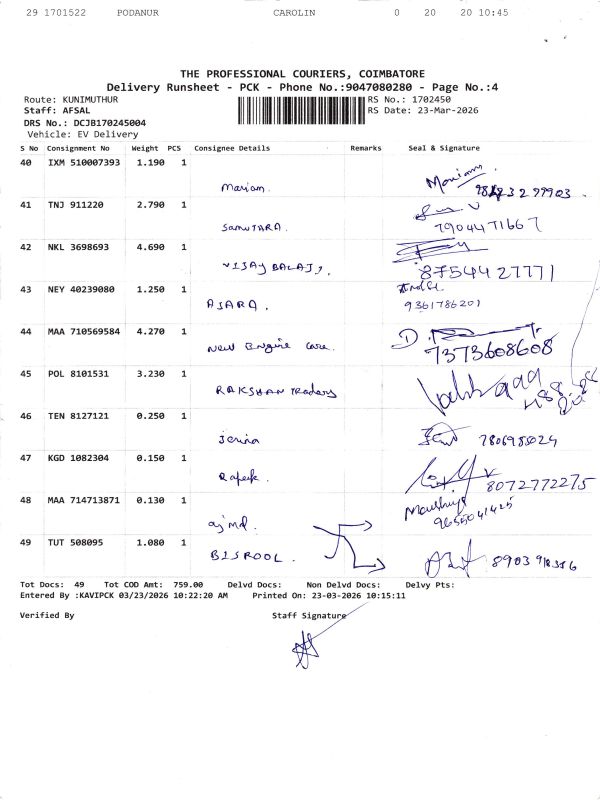 29 1701522 PODANUR CAROLIN 0 20 20 10:45
THE PROFESSIONAL COURIERS, COIMBATORE
Delivery Runsheet - PCK - Phone No.:9047080280 - Page No.:4
Route: KUNIMUTHUR RS No.: 1702450
Staff: AFSAL RS Date: 23-Mar-2026
DRS No.: DCJB170245004
Vehicle: EV Delivery
S No Consignment No Weight PCS Consignee Details Remarks Seal & Signature
40 IXM 510007393 1.190 1
Mariam.
41 TNJ 911220 2.790 1
7904471667
42 NKL 3698693 4.690 1
VIJAY BALAJI. 8754427771
43 NEY 40239080 1.250 1
AJARA. 9361786201
44 MAA 710569584 4.270 1
New Engine Care. 7373608608
45 POL 8101531 3.230 1
RAKSHAN Traders
46 TEN 8127121 0.250 1
Jerina 7806985024
47 KGD 1082304 0.150 1
Rafeek. 8072772275
48 MAA 714713871 0.130 1
ajmal. 9655041425
49 TUT 508095 1.080 1
BISROOL. 8903918356
Tot Docs: 49 Tot COD Amt: 759.00 Delvd Docs: Non Delvd Docs: Delvy Pts:
Entered By :KAVIPCK 03/23/2026 10:22:20 AM Printed On: 23-03-2026 10:15:11
Verified By Staff Signature